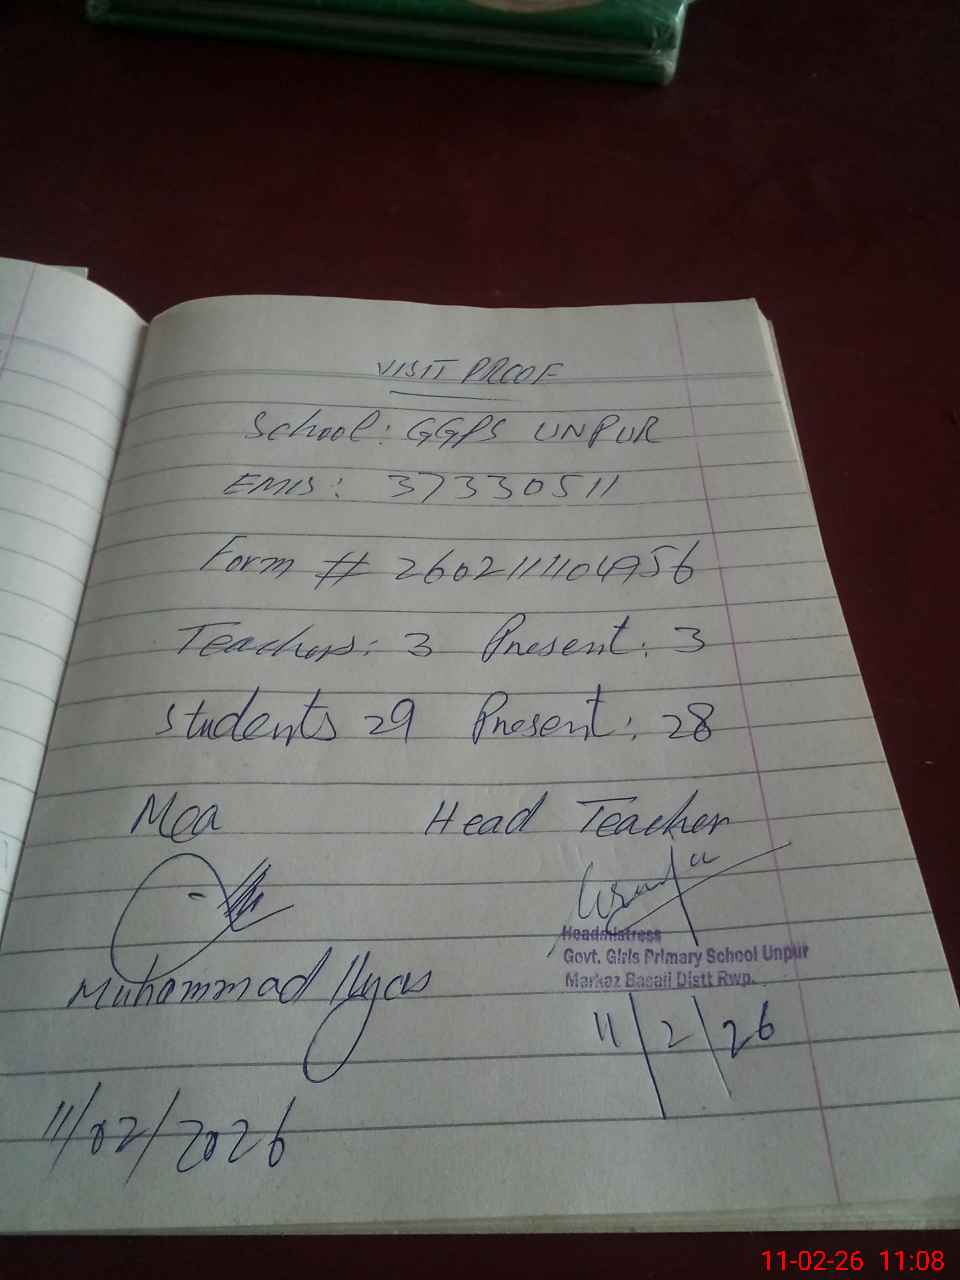 VISIT PROOF
School: GGPS UNPUR
EMIS: 37330511
Form # 2602111104956
Teachers: 3 Present: 3
Students 29 Present: 28
Mea Head Teacher
Headmistress
Govt. Girls Primary School Unpur
Markaz Basali Distt Rwp.
Muhammad Ilyas
11/2/26
11/02/2026
11-02-26 11:08